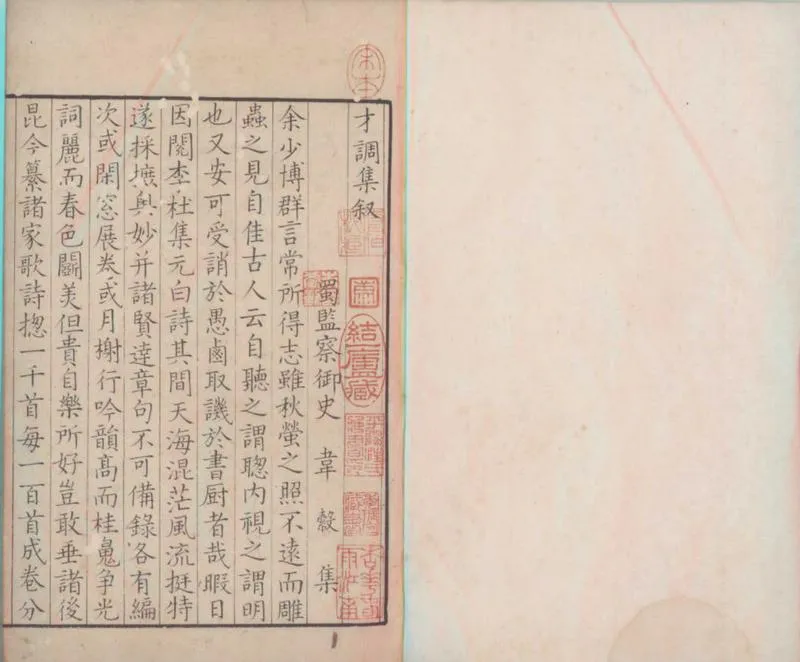 宋本
才調集叙
結廬藏
蜀監察御史 韋 縠 集
余少博群言常所得志雖秋螢之照不遠而雕
蟲之見自佳古人云自聽之謂聦内視之謂明
也又安可受誚於愚鹵取譏於書厨者哉暇日
因閱李杜集元白詩其間天海混茫風流挺特
遂採摭奥妙并諸賢達章句不可備錄各有編
次或閑窓展卷或月榭行吟韻高而桂魄争光
詞麗而春色鬭美但貴自樂所好豈敢垂諸後
昆今纂諸家歌詩揔一千首每一百首成卷分